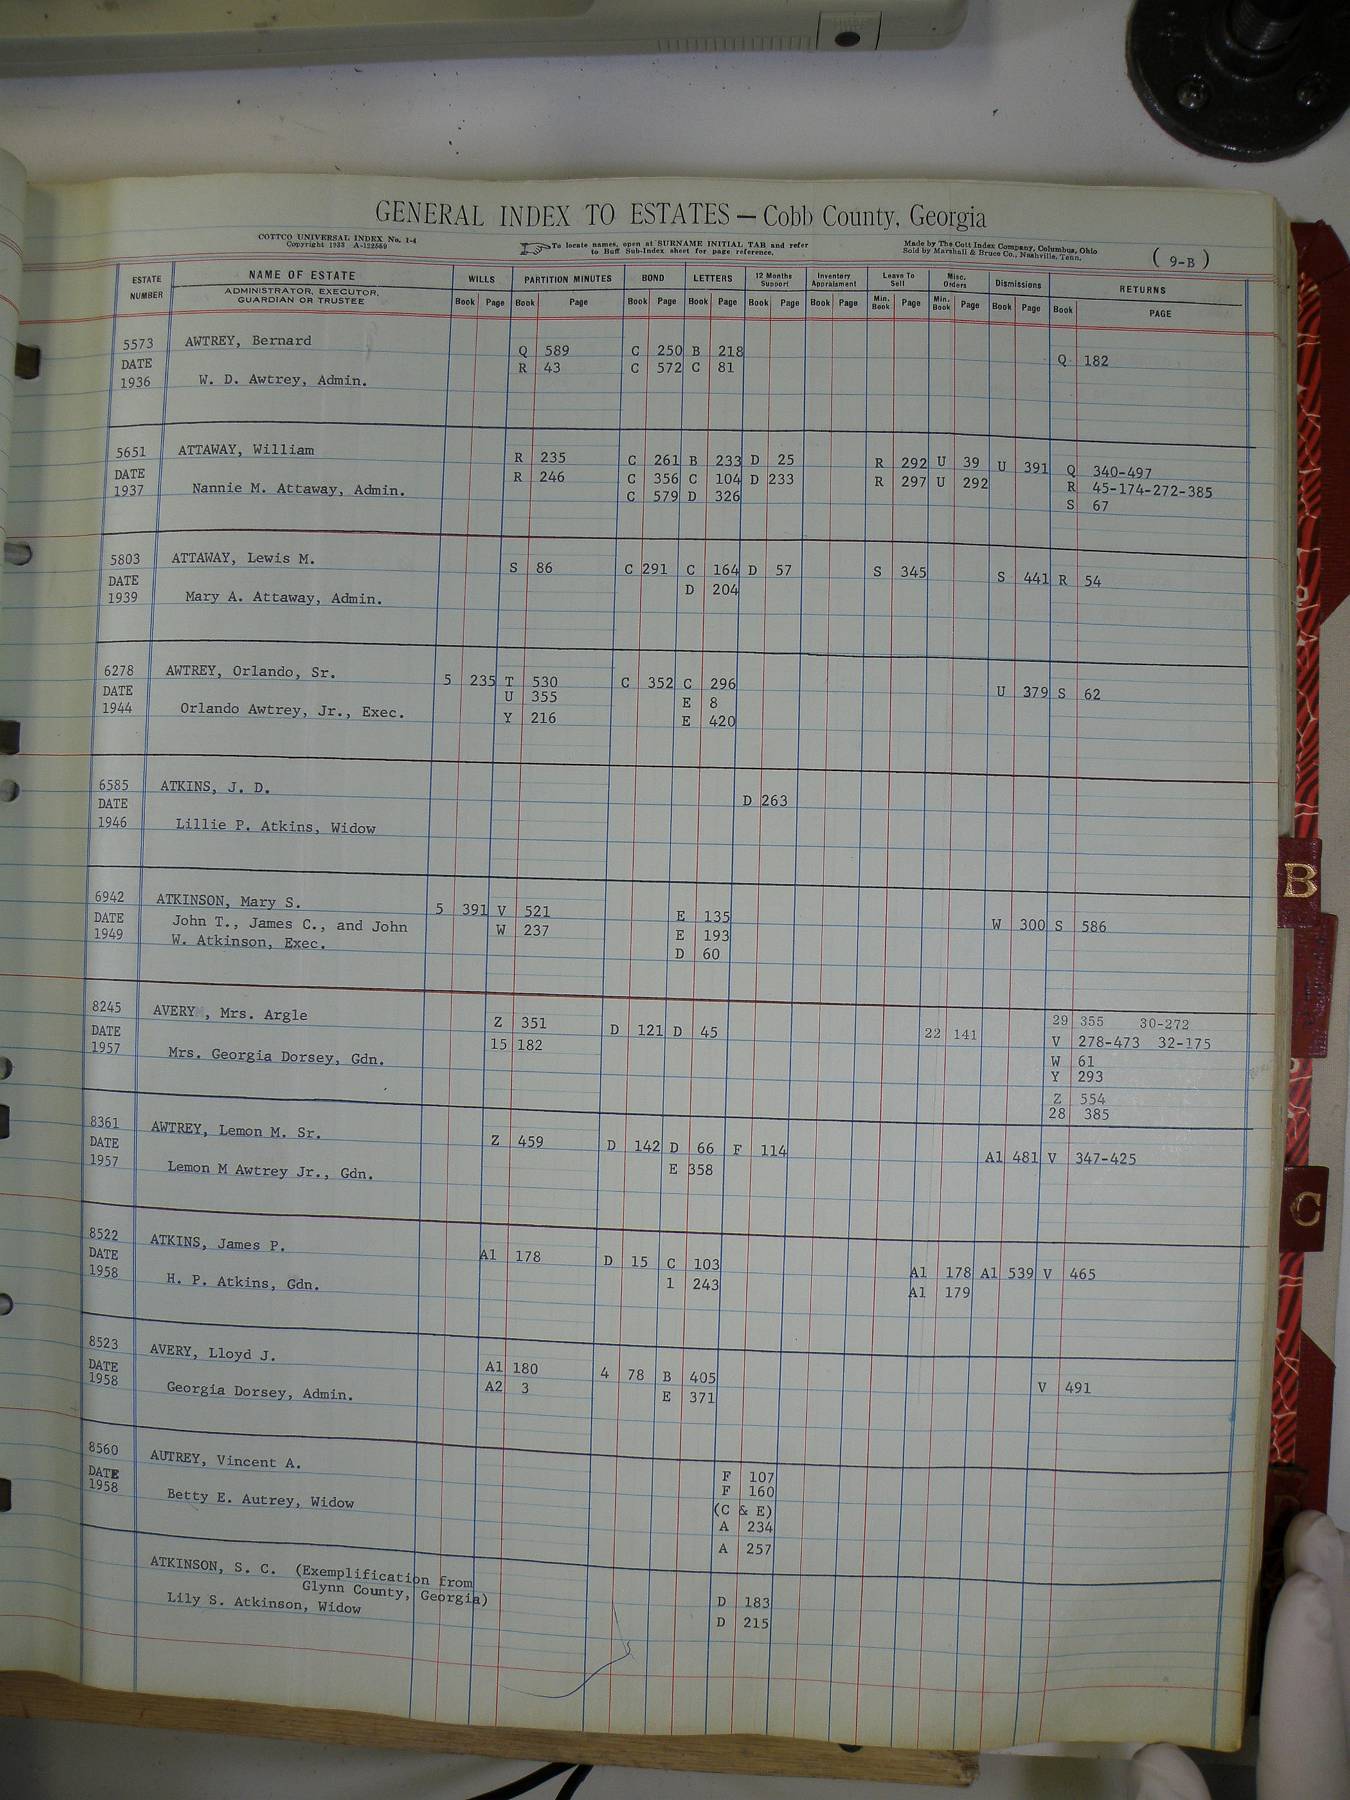 GENERAL INDEX TO ESTATES — Cobb County, Georgia
COTTCO UNIVERSAL INDEX No. 1-4
Copyright 1933 A-122569
To locate names, open at SURNAME INITIAL TAB and refer
to Buff Sub-Index sheet for page reference.
Made by The Cott Index Company, Columbus, Ohio
Sold by Marshall & Bruce Co., Nashville, Tenn.
( 9-B )
ESTATE NUMBER
NAME OF ESTATE
ADMINISTRATOR, EXECUTOR, GUARDIAN OR TRUSTEE
WILLS PARTITION MINUTES BOND LETTERS 12 Months Support Inventory Appraisment Leave To Sell Misc. Orders Dismissions RETURNS
Book Page Book Page Book Page Book Page Book Page Book Page Min. Book Page Min. Book Page Book Page Book PAGE
5573 AWTREY, Bernard
Q 589 C 250 B 218 Q 182
DATE R 43 C 572 C 81
1936 W. D. Awtrey, Admin.
5651 ATTAWAY, William
R 235 C 261 B 233 D 25 R 292 U 39 U 391 Q 340-497
DATE R 246 C 356 C 104 D 233 R 297 U 292 R 45-174-272-385
1937 Nannie M. Attaway, Admin. C 579 D 326 S 67
5803 ATTAWAY, Lewis M.
S 86 C 291 C 164 D 57 S 345 S 441 R 54
DATE D 204
1939 Mary A. Attaway, Admin.
6278 AWTREY, Orlando, Sr.
5 235 T 530 C 352 C 296 U 379 S 62
DATE U 355 E 8
1944 Orlando Awtrey, Jr., Exec. Y 216 E 420
6585 ATKINS, J. D.
DATE D 263
1946 Lillie P. Atkins, Widow
6942 ATKINSON, Mary S.
5 391 V 521 E 135 W 300 S 586
DATE John T., James C., and John W 237 E 193
1949 W. Atkinson, Exec. D 60
8245 AVERY , Mrs. Argle
Z 351 D 121 D 45 22 141 29 355 30-272
DATE 15 182 V 278-473 32-175
1957 Mrs. Georgia Dorsey, Gdn. W 61
Y 293
Z 554
28 385
8361 AWTREY, Lemon M. Sr.
Z 459 D 142 D 66 F 114 A1 481 V 347-425
DATE E 358
1957 Lemon M Awtrey Jr., Gdn.
8522 ATKINS, James P.
A1 178 D 15 C 103 A1 178 A1 539 V 465
DATE 1 243 A1 179
1958 H. P. Atkins, Gdn.
8523 AVERY, Lloyd J.
A1 180 4 78 B 405 V 491
DATE A2 3 E 371
1958 Georgia Dorsey, Admin.
8560 AUTREY, Vincent A.
F 107
DATE F 160
1958 Betty E. Autrey, Widow (C & E)
A 234
A 257
ATKINSON, S. C. (Exemplification from
Glynn County, Georgia)
Lily S. Atkinson, Widow D 183
D 215
B
C